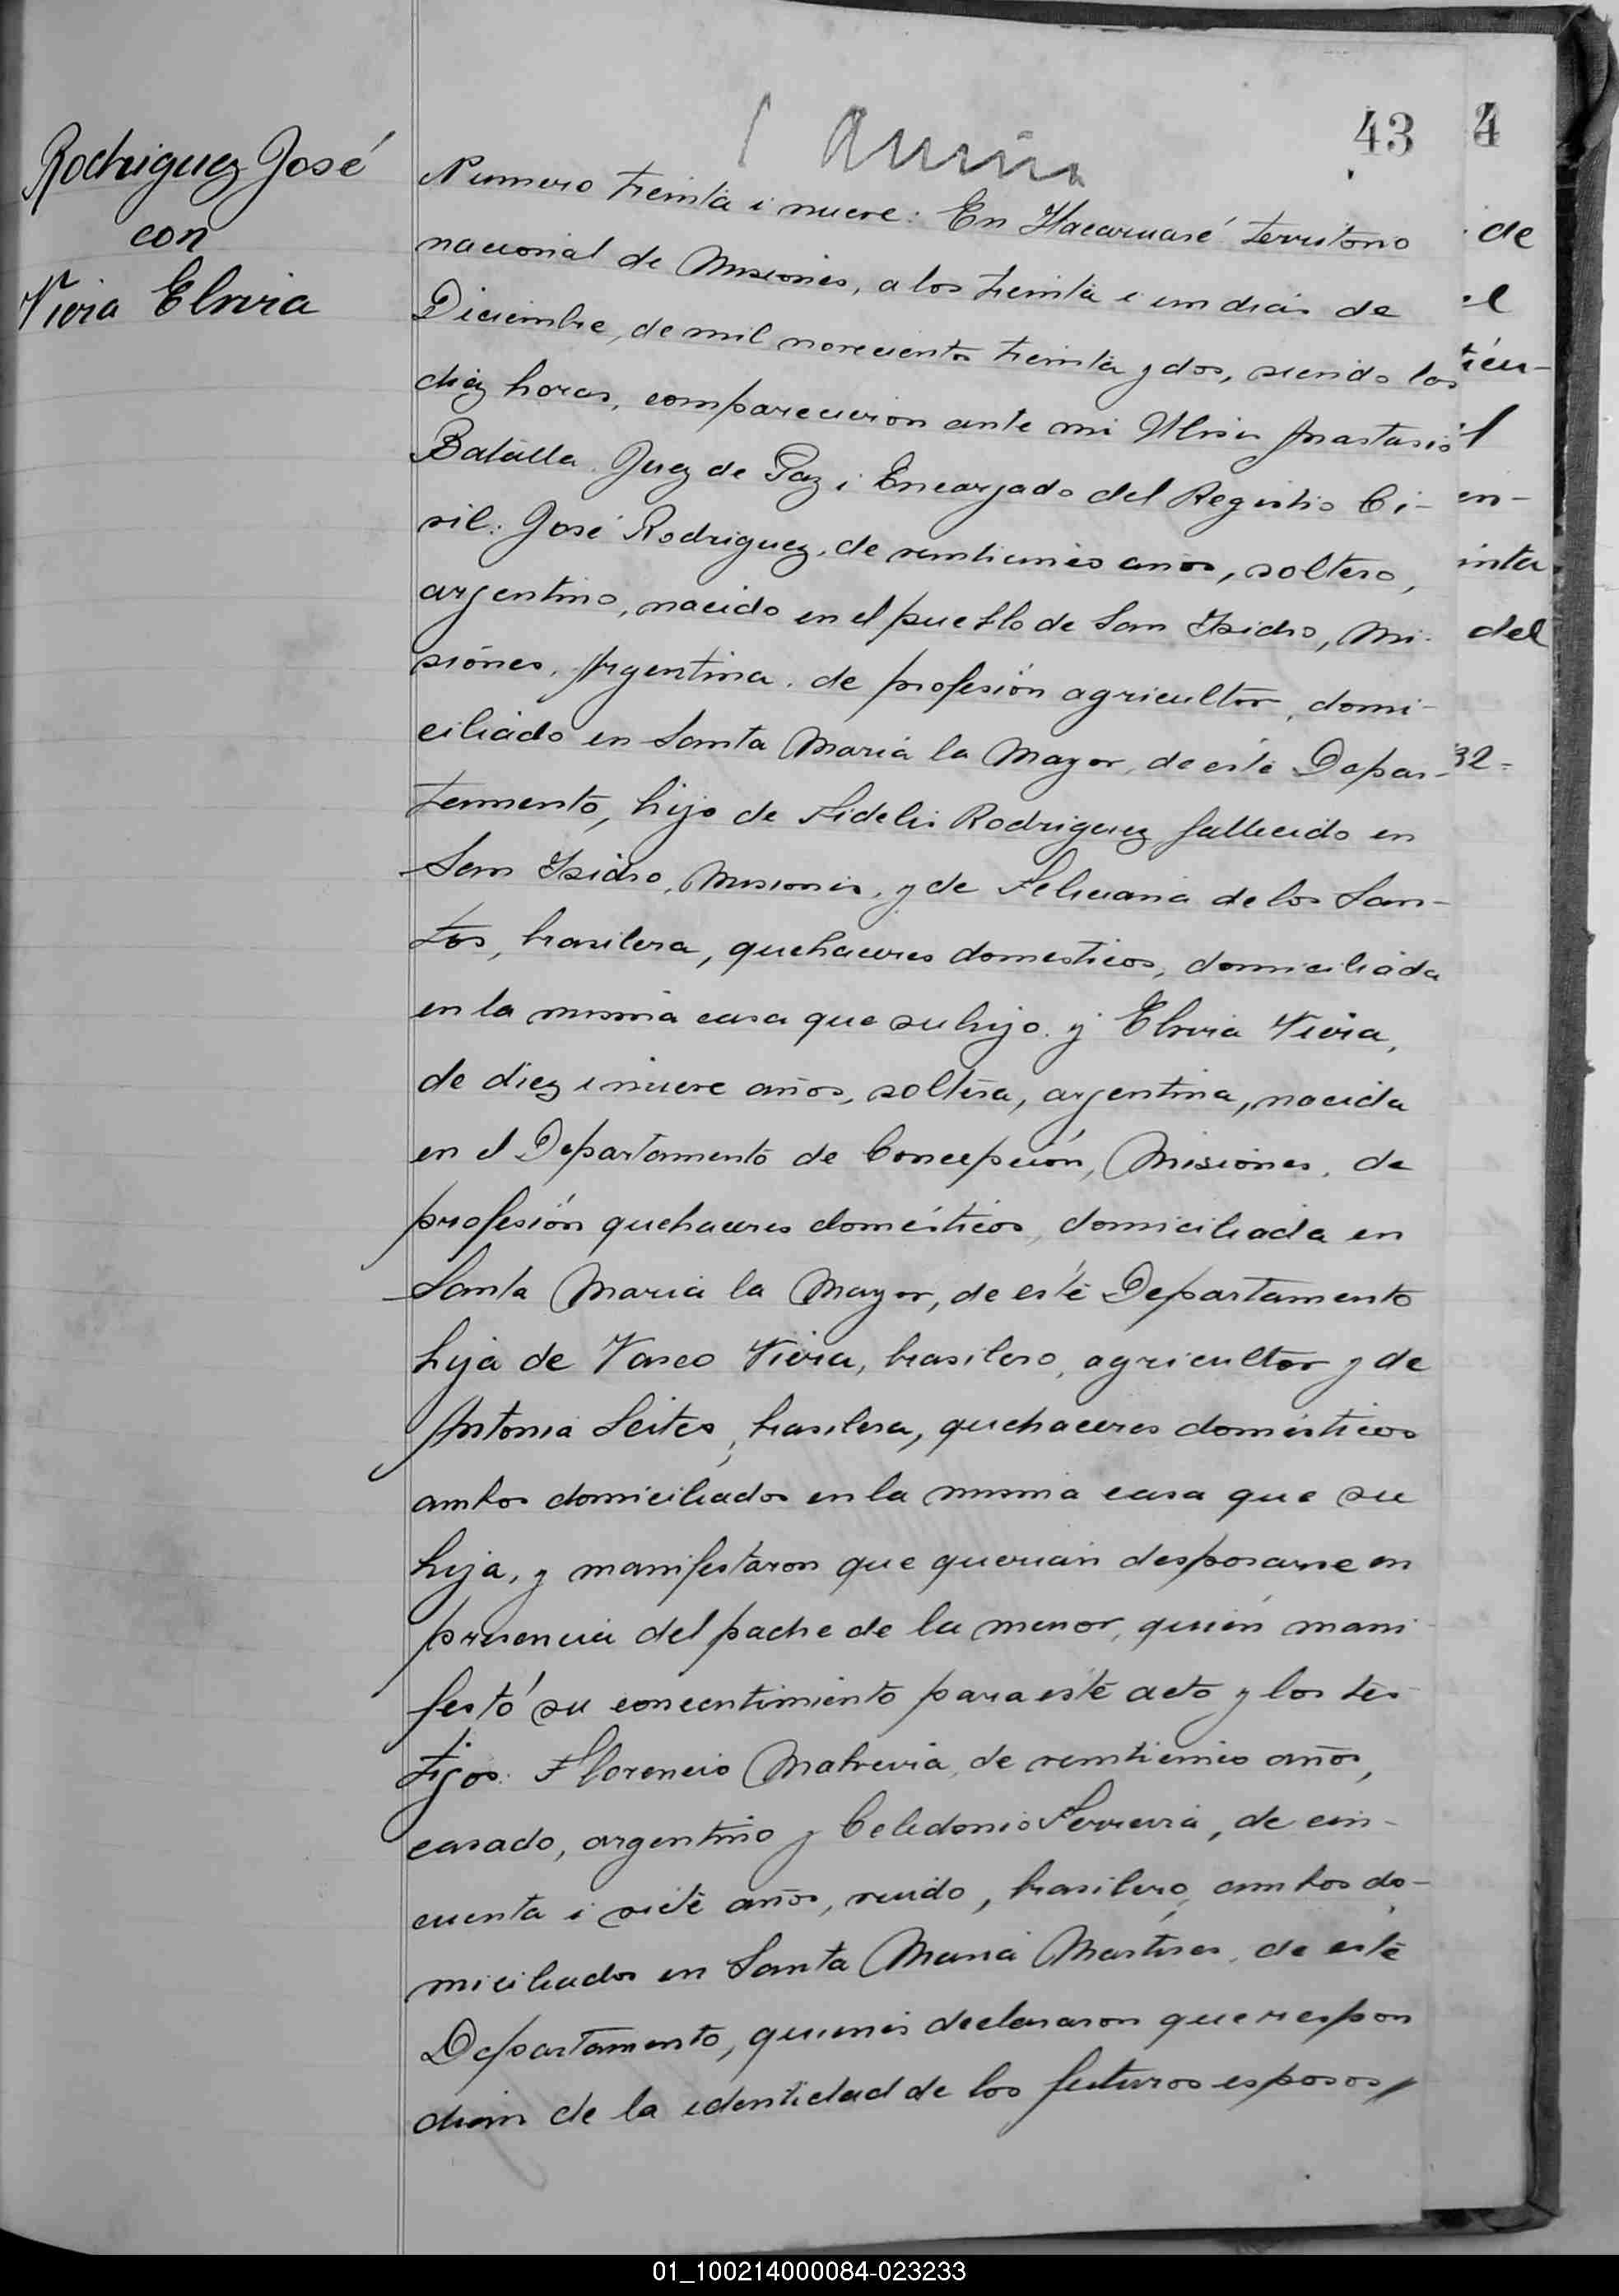 43
4
Rodriguez José
con
Vieira Elvira
Numero treinta i nueve: En Itacaruaré territorio
nacional de Misiones, a los treinta i un dias de
Diciembre, de mil novecientos treinta y dos, siendo las
diez horas, comparecieron ante mi Ulises Anastasio
Batalla Juez de Paz i Encargado del Registro Ci-
vil: José Rodriguez, de veinticinco años, soltero,
argentino, nacido en el pueblo de San Isidro, Mi-
siones, Argentina, de profesión agricultor, domi-
ciliado en Santa Maria la Mayor, de este Depar-
tamento, hijo de Fidelis Rodriguez fallecido en
San Isidro, Misiones, y de Feliciana de los San-
tos, brasilera, quehaceres domesticos, domiciliada
en la misma casa que su hijo. y Elvira Vieira,
de diez i nueve años, soltera, argentina, nacida
en el Departamento de Concepción, Misiones, de
profesión quehaceres domésticos, domiciliada en
Santa Maria la Mayor, de este Departamento
hija de Vasco Vieira, brasilero, agricultor y de
Antonia Leites, brasilera, quehaceres domésticos
ambos domiciliados en la misma casa que su
hija, y manifestaron que querian desposarse en
presencia del padre de la menor, quién mani
festó su concentimiento para este acto y los tes
tigos: Florencio de veinticinco años,
casado, argentino y Celedonio Ferreira, de cin-
cuenta i siete años, viudo, brasilero, ambos do-
miciliados en Santa Maria Martires, de este
Departamento, quienes declararon que respon
dian de la identidad de los futuros esposos
de
el
en-
inta
del
32-
01_100214000084-023233